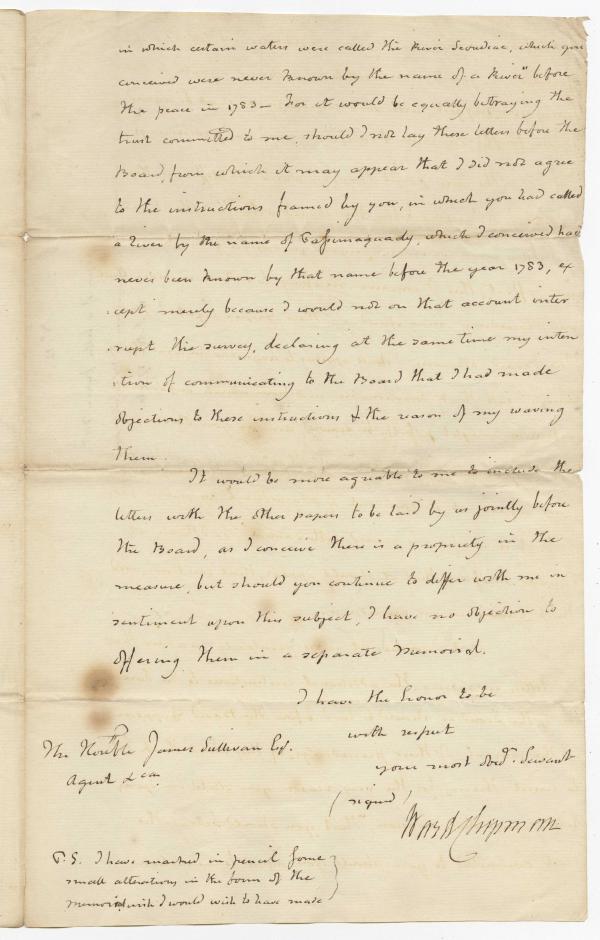 in which certain waters were called the River Scoudiac, which you
conceived were never known by the name of a River" before
the peace in 1783 — For it would be equally betraying the
trust committed to me, should I not lay these letters before the
Board, from which it may appear that I did not agree
to the instructions framed by you, in which you had called
a River by the name of Passimaquady, which I conceived had
never been known by that name before the year 1783, ex
cept merely because I would not on that account inter
rupt the survey, declaring at the same time my inten
tion of communicating to the Board that I had made
objections to these instructions & the reason of my waving
them.
It would be more agreable to me to include the
letters with the other papers to be laid by us jointly before
the Board, as I conceive there is a propriety in the
measure, but should you continue to differ with me in
sentiment upon this subject, I have no objection to
offering them in a separate Memorial.
I have the honor to be
with respect
your most obedt. Servant
(signed)
Ward Chipman
The Honble James Sullivan Esqr.
Agent &ca
P.S. I have marked in pencil some
small alterations in the form of the
memorial wish I would wish to have made